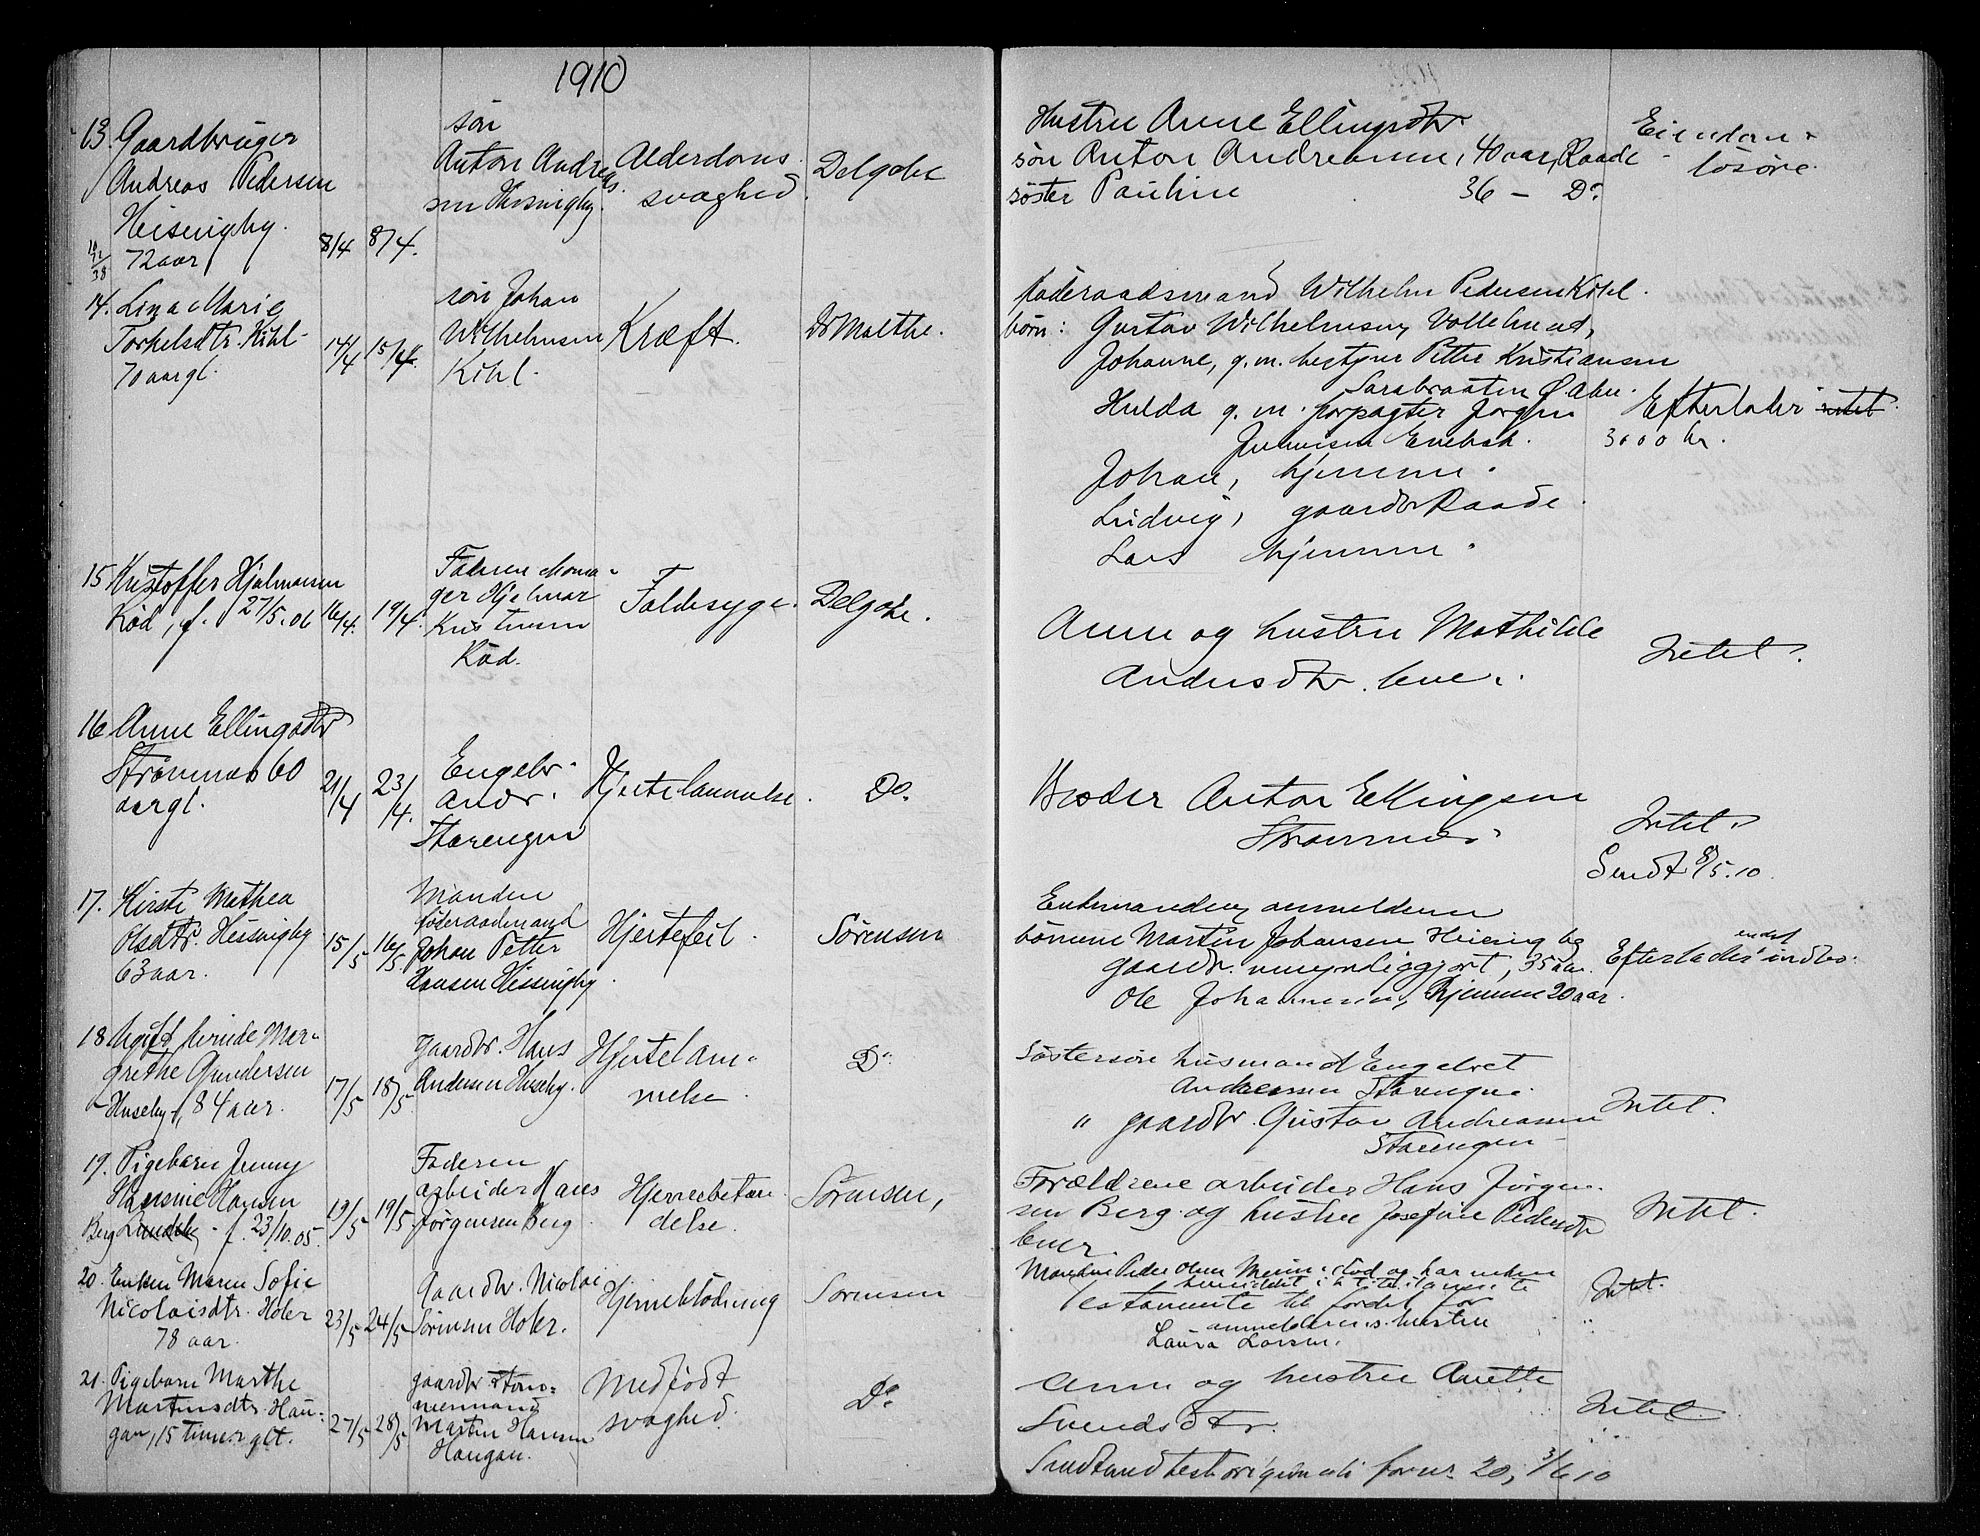 1910
13. Gaardbruger
Andreas Pedersen
Heisenigby.
72 aar
8/4 8/4.
søn
Anton Andreas
sen
Alderdoms
svaghed.
Delgobe
Hustru Anne Ellingsdtr
søn Anton Andreassen, 40 aar, Raade
søster Pauline 36 – Do
Eiendom
løsøre.
14. Lina Marie
Torkelsdtr. Kihl
70 aar gl.
14/4 15/4.
søn Johan
Wilhelmsen
Kihl.
Kræft.
Dr Malthe.
føderaadsmand Wilhelm Pedersen Kihl.
børn: Gustav Wilhelmsen,
Johanne, g.m. bestyrer Petter Kristiansen
Sarabraaten Ø. Aker.
Hulda g.m. forpagter Jørgen
Enebak.
Johan, hjemme.
Ludvig, gaardbr Raade.
Lars hjemme.
Efterlader intet.
3000 kr.
15 Kristoffer Hjalmarsen
Kød, f. 27/5.06
16/4. 19/4.
Faderen
Hjalmar
Kristensen
Kød.
Faldesyge.
Delgobe.
Anm og hustru Mathilde
Andersdtr. lever.
Intet.
16 Anne Ellingsdtr
Strømnes 60
aar gl.
21/4 23/4.
Engebr.
Andr.
Starengen
Hjertelammelse.
Do.
Broder Anton Ellingsen
Strømnes
Intet.
Sendt 8/5.10.
17. Kirsti Mathea
Olsdtr. Heisenigby
63 aar.
15/5 16/5
Manden
føderaadmand
Johan Petter
Hansen
Hjertefeil.
Sørensen
Enkemanden, anmelderen
børnene Martin Johansen
gaardbr. umyndiggjort, 35 aar.
Ole Johannesen, hjemme 20 aar.
Efterlader endel indbo.
18 Ugift kvinde Mar-
grethe Gundersen
Huseby, 84 aar.
17/5 18/5
Gaardbr. Hans
Andersen Huseby.
Hjertelam-
melse.
Do
Søstersøn husmand Engebret
Andreassen Starengen.
" gaardbr. Gustav Andreassen
Starengen
Intet.
19. Pigebarn Jenny
Hansen
Berg f. 23/10.05.
19/5 19/5
Faderen
arbeider Hans
Jørgensen Berg.
Hjernebetæn-
delse.
Sørensen,
Forældrene arbeider Hans Jørgen-
sen Berg og hustru Josefine Pedersdtr
lever.
Intet.
20. Enken Maren Sofie
Nicolaisdtr. Holer
78 aar.
23/5 24/5
Gaardbr. Nicolai
Sørensen Holer.
Hjerneblødning
Sørensen
Manden Peder Olsen død og har enken
testamente til fordel for
anmelderens hustru
Laura Larsen.
Intet.
21. Pigebarn Marthe
Martinsdtr. Hau-
gan, 15 timer glt.
27/5 28/5
gaardbr & tøm-
mermand
Martin Hansen
Haugan.
Medfødt
svaghed.
Do
Anm og hustru Anette
Svendsdtr.
Intet.
Sendt for nr 20, 3/6 10